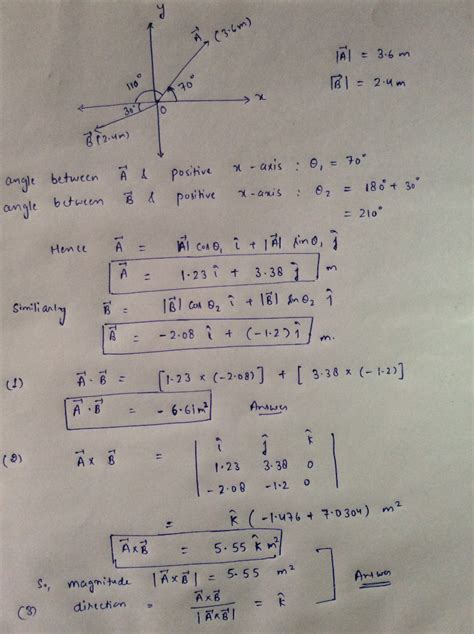 y
A⃗ (3.6m)
|A⃗| = 3.6 m
110°
70°
|B⃗| = 2.4 m
30°
O
x
B⃗(2.4m)
angle between A⃗ & positive x-axis : θ₁ = 70°
angle between B⃗ & positive x-axis : θ₂ = 180° + 30°
= 210°
Hence A⃗ = |A⃗| cos θ₁ î + |A⃗| sin θ₁ ĵ
A⃗ = 1.23 î + 3.38 ĵ m
Similiarly B⃗ = |B⃗| cos θ₂ î + |B⃗| sin θ₂ ĵ
B⃗ = -2.08 î + (-1.2) ĵ m.
(1) A⃗ . B⃗ = [1.23 × (-2.08)] + [3.38 × (-1.2)]
A⃗ . B⃗ = - 6.61 m² Answer
(2) A⃗ x B⃗ = | î ĵ k̂ |
1.23 3.38 0
-2.08 -1.2 0
= k̂ (-1.476 + 7.0304) m²
A⃗xB⃗ = 5.55 k̂ m²
So, magnitude |A⃗xB⃗| = 5.55 m²
(3) direction = A⃗xB⃗ / |A⃗xB⃗| = k̂ Answer